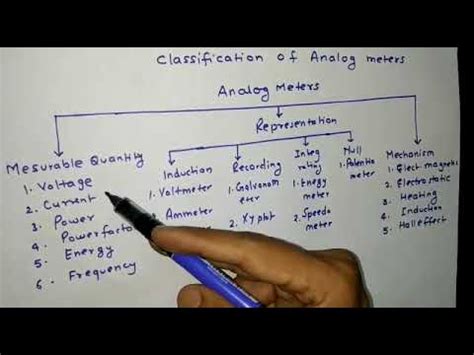 Classification of Analog meters
Analog Meters
Representation
Mesurable Quantity
1. Voltage
2. Current
3. Power
4. Powerfacto
5. Energy
6. Frequency
Induction
1. Voltmeter
2. Ammeter
Recording
1. Galvonom
eter
2. XY plot
Integ
rating
1. Energy
meter
2. Speedo
meter
Null
1. Potentio
meter
Mechanism
1. Elect magnetic
2. Electrostatic
3. Heating
4. Induction
5. Hall effect